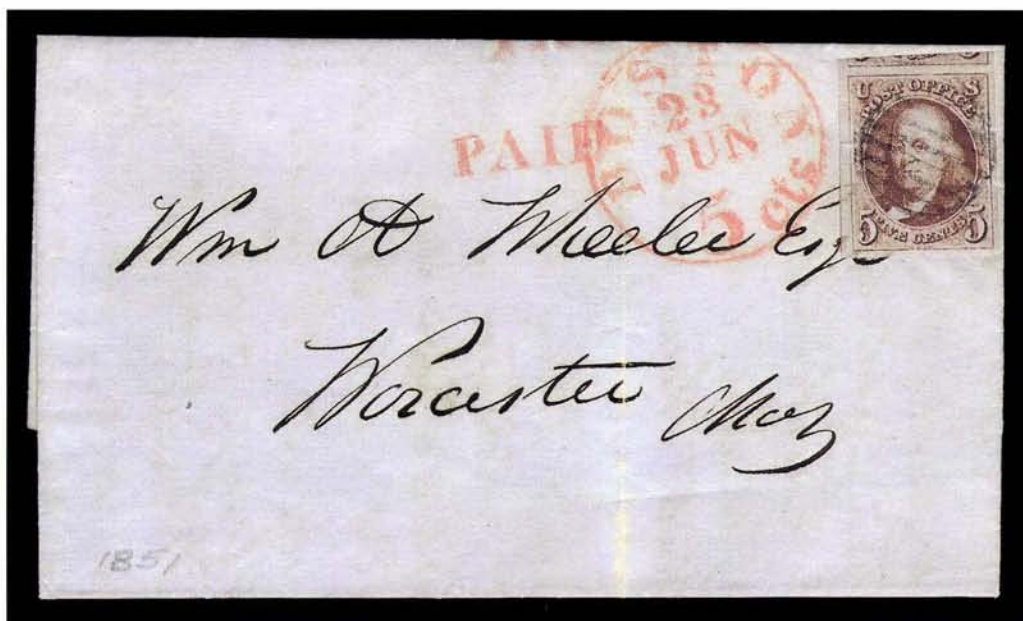 PAID
BOSTON
23
JUN
5 cts
U S
POST OFFICE
5 FIVE CENTS 5
Wm A Wheeler Esq
Worcester Mas
1851